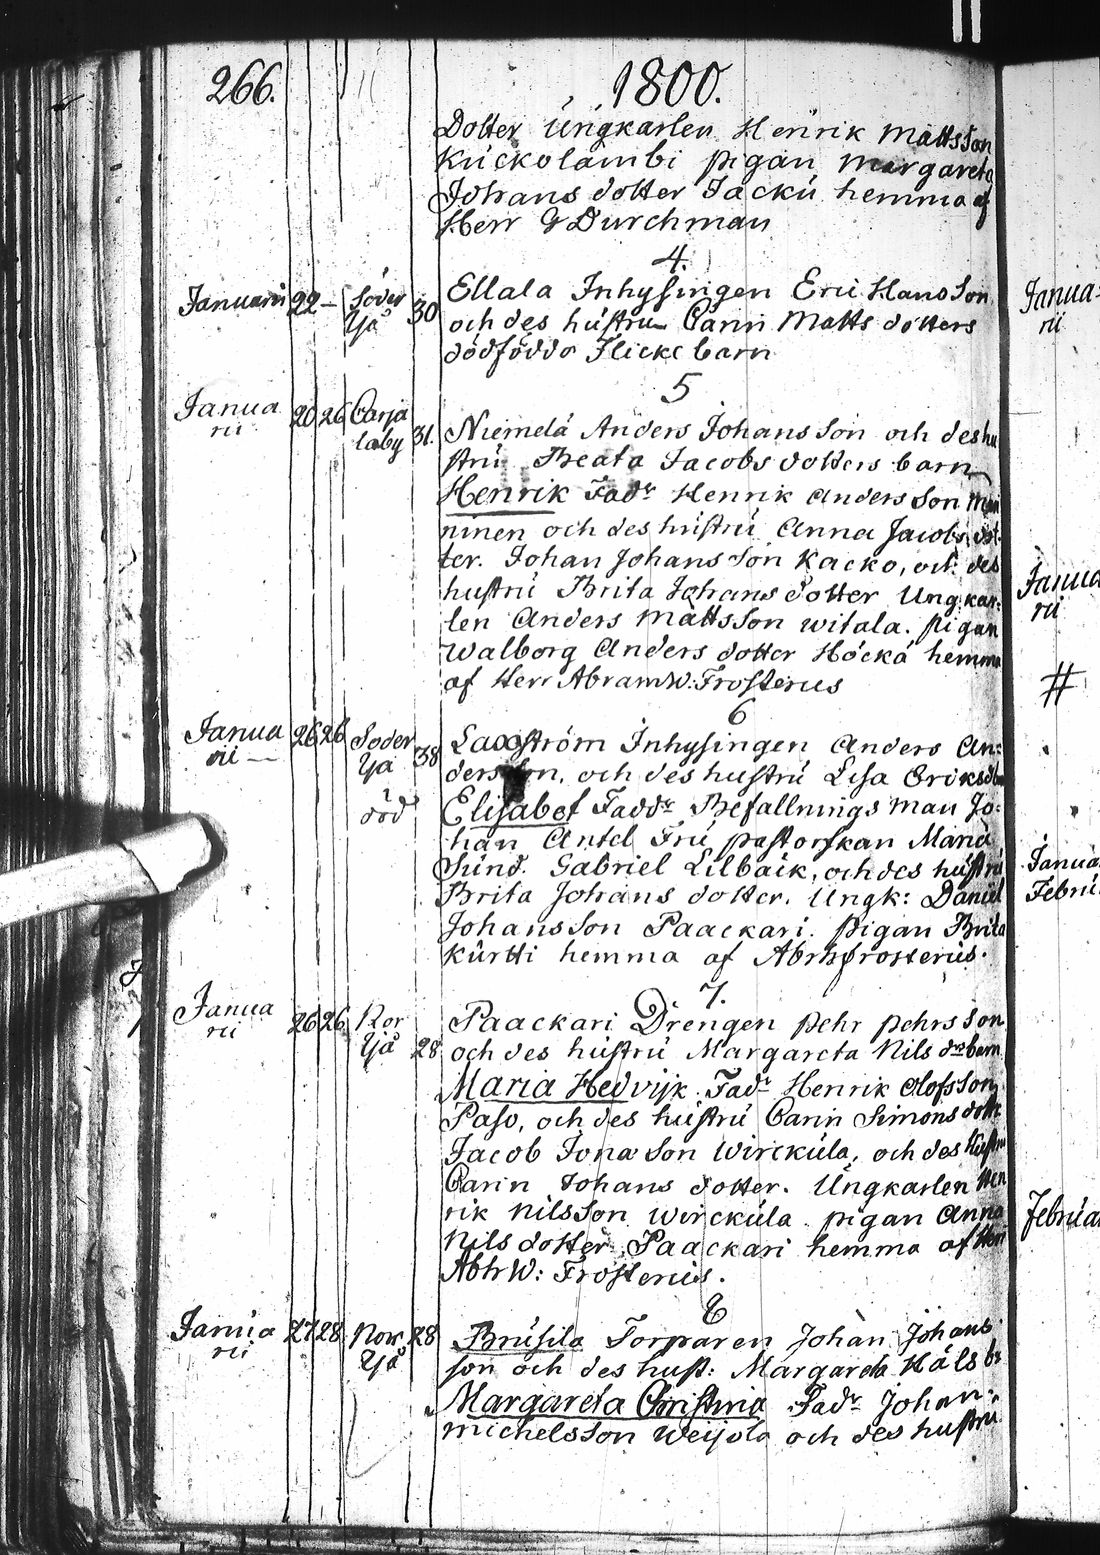 266. 1800.
Dotter Ungkarlen Henrik Mattsson
Kuckolambi pigan Margareta
Johans dotter Jacku hemma af
Herr G Durchman
4.
Januarii 22 — Söder Yå 30 Ellala Inhysingen Eric Hansson
och des hustru Carin Matts dotters
dödföddo Flicke barn
5
Janua
rii 20 26 Carja
laby 31. Niemelä Anders Johansson och des hu
stru Beata Jacobs dotters barn
Henrik Fadr Henrik Andersson
ninen och des hustru Anna Jacobs dot
ter. Johan Johansson Kacko, och des
hustru Brita Johans dotter Ungkar:
len Anders Mattsson witala. pigan
Walborg Anders dotter Höckå hemma
af Herr Abram W: Frosterus
6
Janua
rii — 26 26 Söder
Yå 38 Laxström Inhysingen Anders An:
dersson, och des hustru Lisa Eriks
död Elisabet Faddr Befallnings man Jo:
han Antel Fru pastorskan Maria
Sund. Gabriel Lilbäck, och des hustru
Brita Johans dotter. Ungk: Daniel
Johansson Paackari. pigan Brita
Kurtti hemma af Abrh frosterus.
7.
Janua
rii 26 26 Nor
Yå 28 Paackari Drengen pehr pehrsson
och des hustru Margareta Nils drs barn
Maria Hedvijk Fadr Henrik Olofsson
Paso, och des hustru Carin Simons dottr
Jacob Jonasson Wirckula, och des hustru
Carin Johans dotter. Ungkarlen Hen
rik Nilsson Wirckula pigan Anna
Nils dotter Paackari hemma af Herr
Abh W: Frosterus.
8
Janua
rii 27 28 Nor
Yå 28 Brusila Torparen Johan Johans
son och des hust: Margareta Håls br
Margareta Christina Fadr Johan
michelsson Weijola och des hustru
Janua-
rii
Janua
rii
#
Janua
Febru
Februa